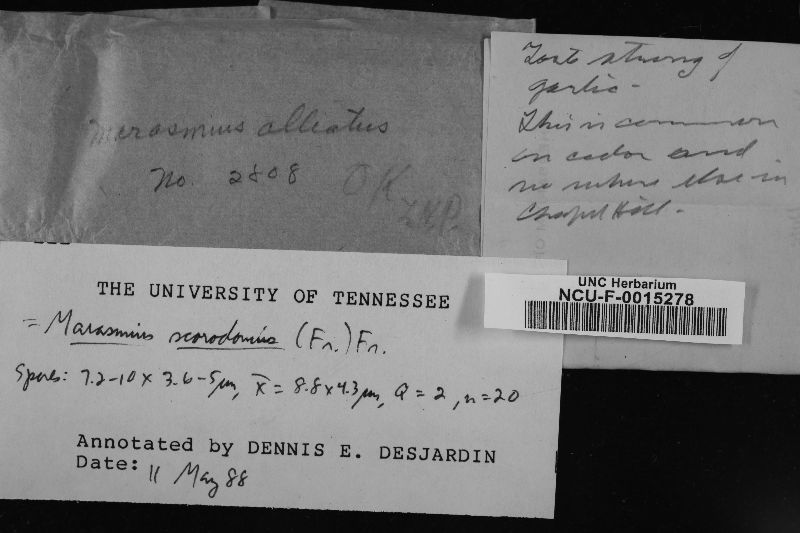 Marasmius alliatus
No. 2808 OK
L.R.P.
Taste strong of
garlic -
This is common
on cedar and
no where else in
Chapel Hill -
THE UNIVERSITY OF TENNESSEE
= Marasmius scorodonius (Fr.) Fr.
Spores: 7.2-10 x 3.6-5µm, x̄ = 8.8 x 4.3 µm, Q = 2, n = 20
Annotated by DENNIS E. DESJARDIN
Date: 11 May 88
UNC Herbarium
NCU-F-0015278